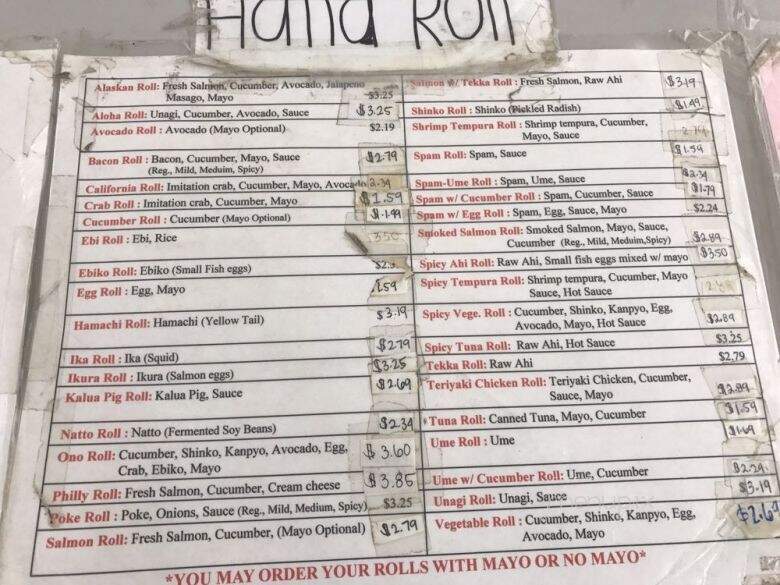 Hand Roll
Alaskan Roll: Fresh Salmon, Cucumber, Avocado, Jalapeno
Masago, Mayo $3.25
Aloha Roll: Unagi, Cucumber, Avocado, Sauce $3.25
Avocado Roll : Avocado (Mayo Optional) $2.19
Bacon Roll : Bacon, Cucumber, Mayo, Sauce $2.79
(Reg., Mild, Meduim, Spicy)
California Roll: Imitation crab, Cucumber, Mayo, Avocado 2.34
Crab Roll : Imitation crab, Cucumber, Mayo $1.59
Cucumber Roll : Cucumber (Mayo Optional) $1.99
Ebi Roll : Ebi, Rice 3.50
Ebiko Roll: Ebiko (Small Fish eggs)
Egg Roll : Egg, Mayo 1.59
Hamachi Roll: Hamachi (Yellow Tail) $3.19
Ika Roll : Ika (Squid) $2.79
Ikura Roll : Ikura (Salmon eggs) $3.25
Kalua Pig Roll: Kalua Pig, Sauce $2.69
Natto Roll : Natto (Fermented Soy Beans) $2.34
Ono Roll: Cucumber, Shinko, Kanpyo, Avocado, Egg, $3.60
Crab, Ebiko, Mayo
Philly Roll: Fresh Salmon, Cucumber, Cream cheese $3.85
Poke Roll : Poke, Onions, Sauce (Reg., Mild, Medium, Spicy) $3.25
Salmon Roll: Fresh Salmon, Cucumber, (Mayo Optional) $2.79
Salmon w/ Tekka Roll : Fresh Salmon, Raw Ahi $3.19
Shinko Roll : Shinko (Pickled Radish) $1.49
Shrimp Tempura Roll : Shrimp tempura, Cucumber,
Mayo, Sauce
Spam Roll: Spam, Sauce $1.59
Spam-Ume Roll : Spam, Ume, Sauce $2.34
Spam w/ Cucumber Roll : Spam, Cucumber, Sauce $1.79
Spam w/ Egg Roll : Spam, Egg, Sauce, Mayo $2.24
Smoked Salmon Roll: Smoked Salmon, Mayo, Sauce,
Cucumber (Reg., Mild, Meduim,Spicy) $2.89
Spicy Ahi Roll: Raw Ahi, Small fish eggs mixed w/ mayo $3.50
Spicy Tempura Roll : Shrimp tempura, Cucumber, Mayo
Sauce, Hot Sauce
Spicy Vege. Roll : Cucumber, Shinko, Kanpyo, Egg,
Avocado, Mayo, Hot Sauce $2.89
Spicy Tuna Roll: Raw Ahi, Hot Sauce $3.25
Tekka Roll: Raw Ahi $2.79
Teriyaki Chicken Roll: Teriyaki Chicken, Cucumber,
Sauce, Mayo $2.89
Tuna Roll: Canned Tuna, Mayo, Cucumber $1.59
Ume Roll : Ume $1.69
Ume w/ Cucumber Roll: Ume, Cucumber $2.29
Unagi Roll: Unagi, Sauce $3.19
Vegetable Roll : Cucumber, Shinko, Kanpyo, Egg, $2.69
Avocado, Mayo
*YOU MAY ORDER YOUR ROLLS WITH MAYO OR NO MAYO*